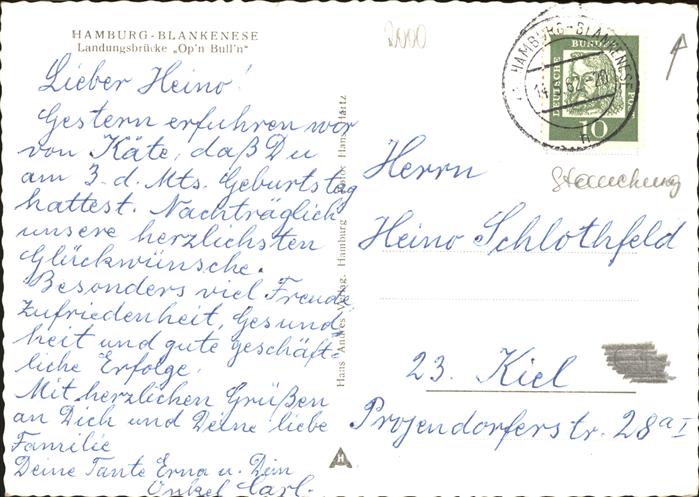 HAMBURG-BLANKENESE
Landungsbrücke „Op'n Bull'n"
Lieber Heino!
Gestern erfuhren wir
von Käte, daß Du
am 3. d. Mts. Geburtstag
hattest. Nachträglich
unsere herzlichsten
Glückwünsche.
Besonders viel Freude,
Zufriedenheit, Gesund=
heit und gute geschäft=
liche Erfolge.
Mit herzlichen Grüßen
an Dich und Deine liebe
Familie
Deine Tante Erna u. Dein
Onkel Carl.
Hans Andres Verlag, Hamburg Foto: Hans Hartz
H
2000
HAMBURG-BLANKENESE
62-20
h
DEUTSCHE BUNDESPOST
10
Stauchung
Herrn
Heino Schlothfeld
23. Kiel
Projendorferstr. 28a I